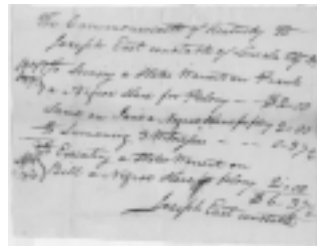 The Commonwealth of Kentucky To
Joseph East constable of Lincoln
To Serving a States Warrant on Frank
a Negroe Slave for Felony -- $2.00
Same on Jane a Negroe Slave felony 2.00
To Summoning 3 Witnesses -- 0.37½
To Executing a States Warrant on
Bill a Negroe Slave felony 2.00
$6.37½
Joseph East constable